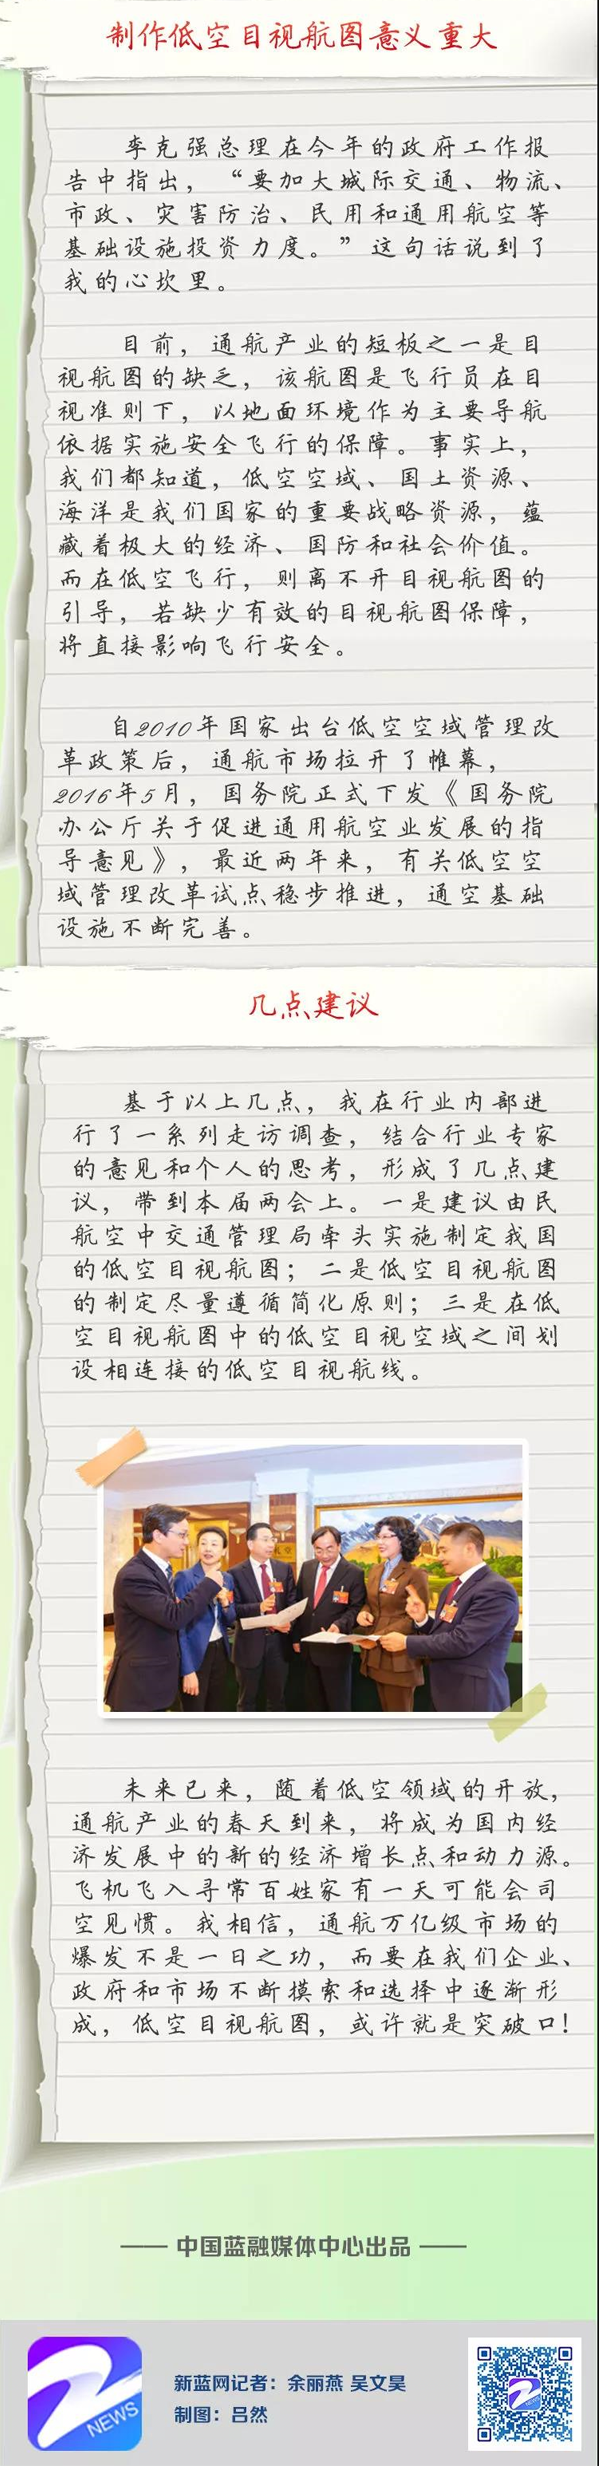 制作低空目视航图意义重大
李克强总理在今年的政府工作报
告中指出，“要加大城际交通、物流、
市政、灾害防治、民用和通用航空等
基础设施投资力度。”这句话说到了
我的心坎里。
目前，通航产业的短板之一是目
视航图的缺乏，该航图是飞行员在目
视准则下，以地面环境作为主要导航
依据实施安全飞行的保障。事实上，
我们都知道，低空空域、国土资源、
海洋是我们国家的重要战略资源，蕴
藏着极大的经济、国防和社会价值。
而在低空飞行，则离不开目视航图的
引导，若缺少有效的目视航图保障，
将直接影响飞行安全。
自2010年国家出台低空空域管理改
革政策后，通航市场拉开了帷幕，
2016年5月，国务院正式下发《国务院
办公厅关于促进通用航空业发展的指
导意见》，最近两年来，有关低空空
域管理改革试点稳步推进，通空基础
设施不断完善。
几点建议
基于以上几点，我在行业内部进
行了一系列走访调查，结合行业专家
的意见和个人的思考，形成了几点建
议，带到本届两会上。一是建议由民
航空中交通管理局牵头实施制定我国
的低空目视航图；二是低空目视航图
的制定尽量遵循简化原则；三是在低
空目视航图中的低空目视空域之间划
设相连接的低空目视航线。
未来已来，随着低空领域的开放，
通航产业的春天到来，将成为国内经
济发展中的新的经济增长点和动力源。
飞机飞入寻常百姓家有一天可能会司
空见惯。我相信，通航万亿级市场的
爆发不是一日之功，而要在我们企业、
政府和市场不断摸索和选择中逐渐形
成，低空目视航图，或许就是突破口！
—— 中国蓝融媒体中心出品 ——
新蓝网记者：余丽燕 吴文昊
制图：吕然
NEWS